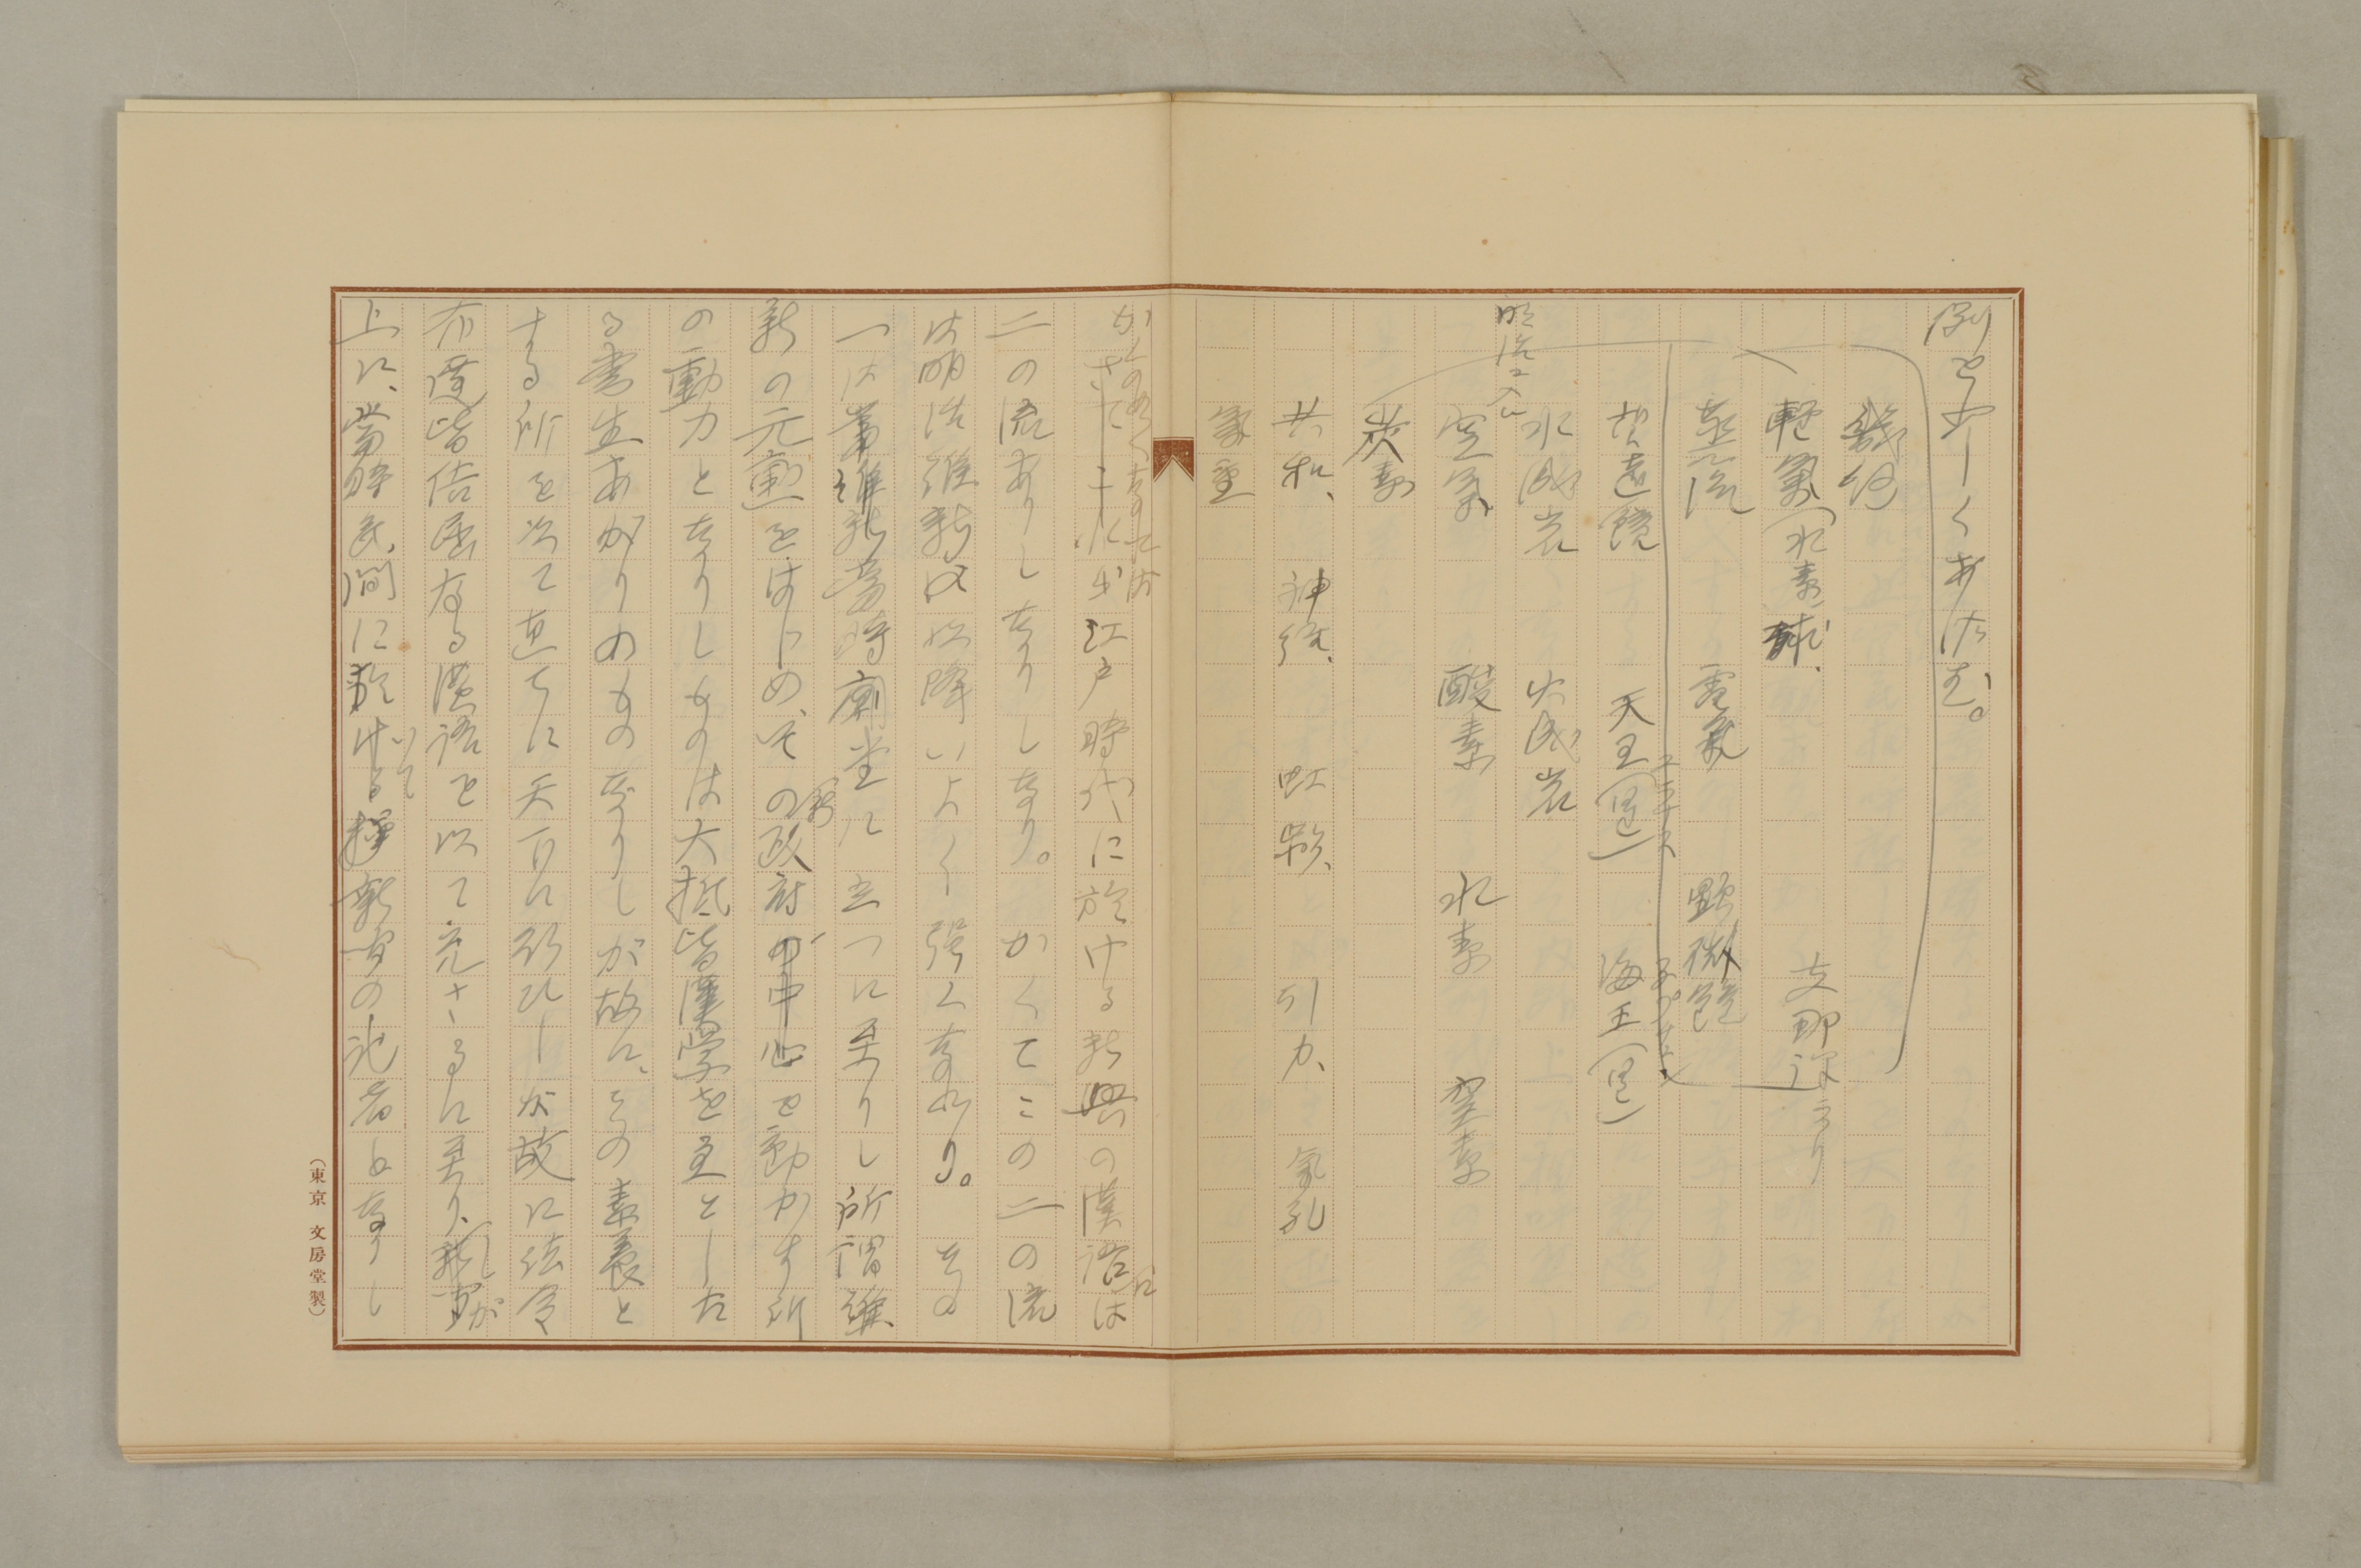 例をや〻しくあげむ。
幾何
軽氣(水素)球、 支那訳にあり
蒸汽 電氣 顕微鏡
望遠鏡 天王(星) 海王(星)
水成岩 火成岩
明治に入る
空氣 酸素 水素 窒素
炭素
共和、 神経、 虹彩、 引力、 氣孔
かくの如くなれば
江戸時代に於ける新興の漢語には
二の流ありしなり。 かくてこの二の流
は明治維新以降いよ〱強くなれり。 その
一は、維新當時廟堂に立つに至りし所謂維
新の元勲をはじめ、その新政府の中心を動かす所
の動力となりしものは大抵皆漢学を主とした
る書生あがりのものなりしが故に、その素養と
する所を以て直ちに天下に臨ひしが故に法令
布達皆佶屈なる漢語を以て充さるるに至り、
上に、當時民間に於ける新聞の記者となりし
(東京 文房堂製)